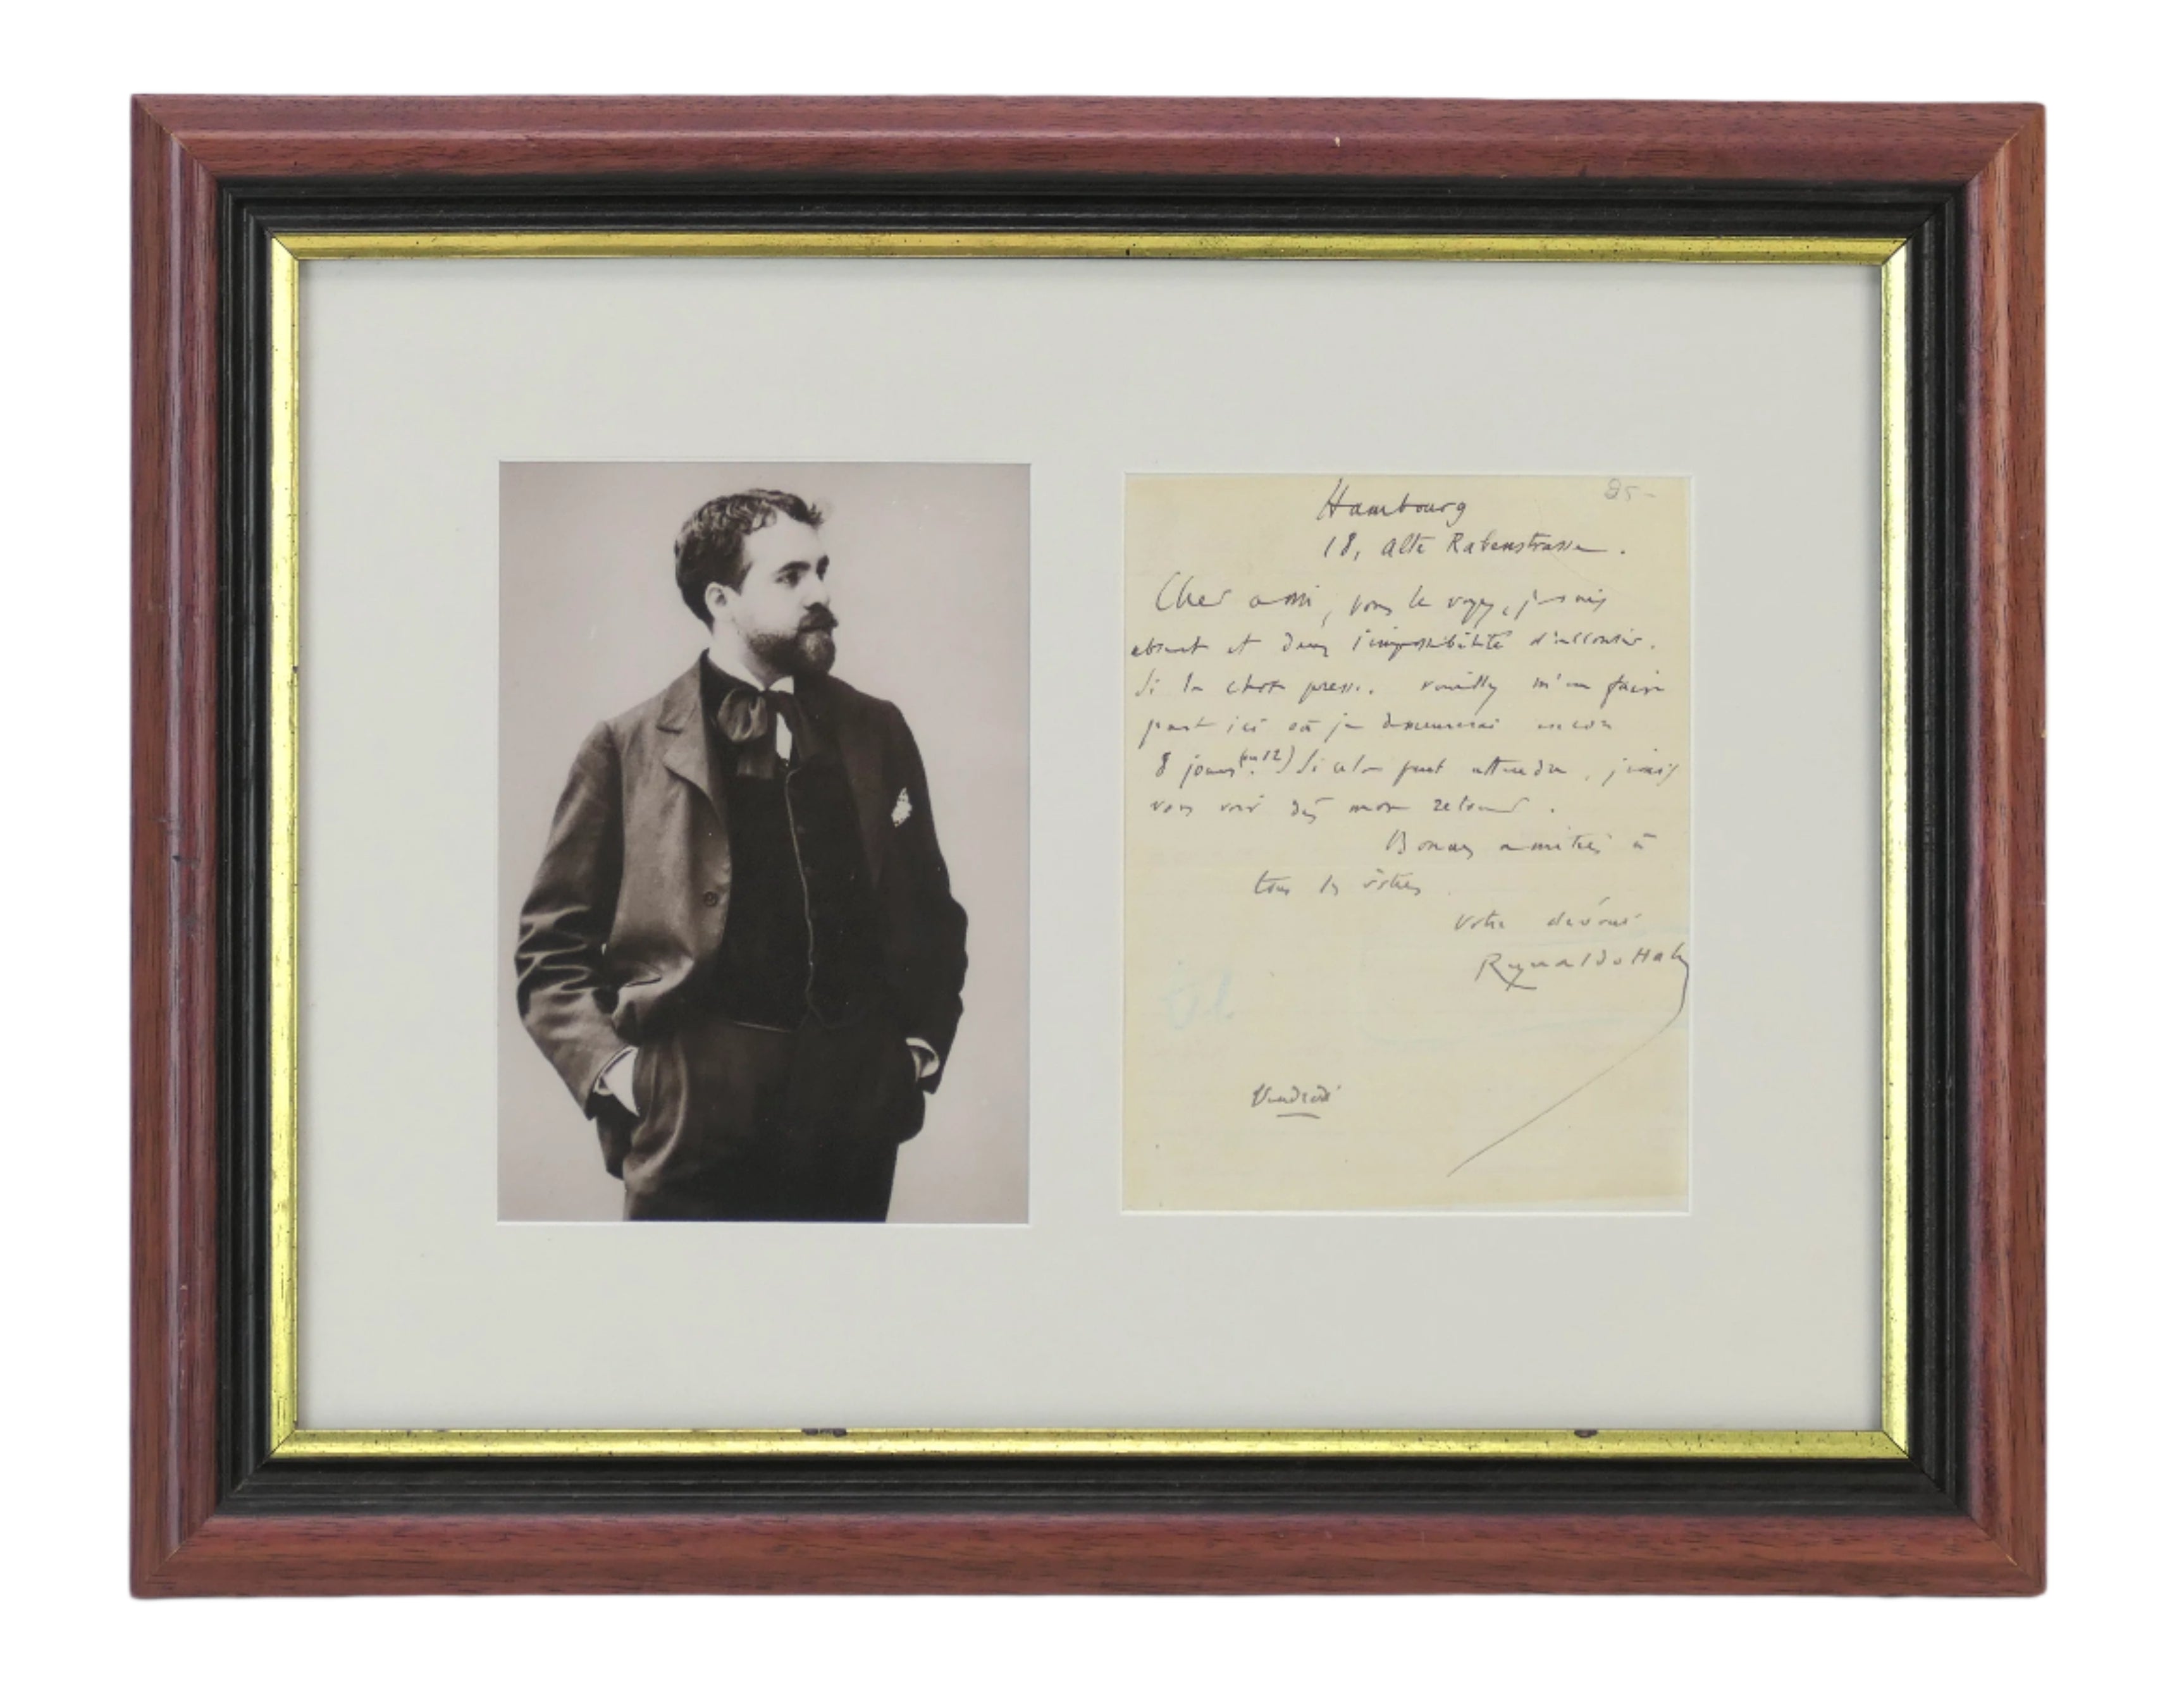 25-
Hambourg
18, Alte Rabenstrasse.
Cher ami, vous le voyez, j'étais
absent et dans l'impossibilité d'accourir.
Si la chose presse, veuillez m'en faire
part ici où je demeurerai encore
8 jours (ou 12). Si cela peut attendre, j'irais
vous voir dès mon retour.
Bonnes amitiés à
tous les vôtres.
Votre dévoué
Reynaldo Hahn
Vendredi